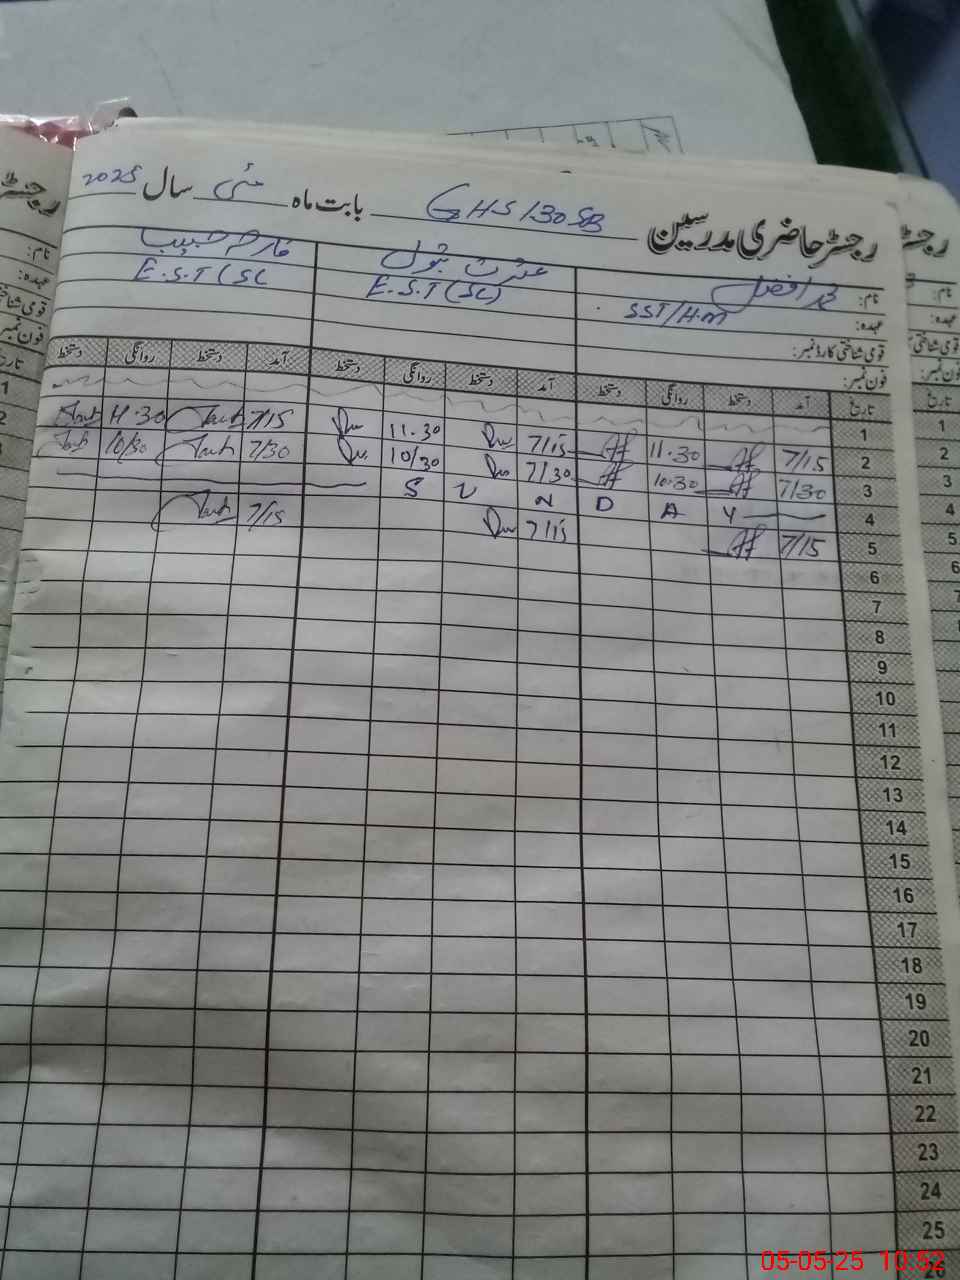 رجسٹر حاضری مدرسین GHS 130 SB بابت ماہ مئی سال 2025
نام: محمد افضل عشرت بتول
عہدہ: SST/H.M E.S.T (SC) E.S.T (SC
قومی شناختی کارڈ نمبر:
فون نمبر:
تاریخ آمد دستخط روانگی دستخط آمد دستخط روانگی دستخط آمد دستخط روانگی دستخط
1
2 7/15 11.30 7/15 11.30 7/15 11.30
3 7/30 10.30 7/30 10/30 7/30 10/30
4 S U N D A Y
5 7/15 7/15 7/15
6
7
8
9
10
11
12
13
14
15
16
17
18
19
20
21
22
23
24
25
26
05-05-25 10:52